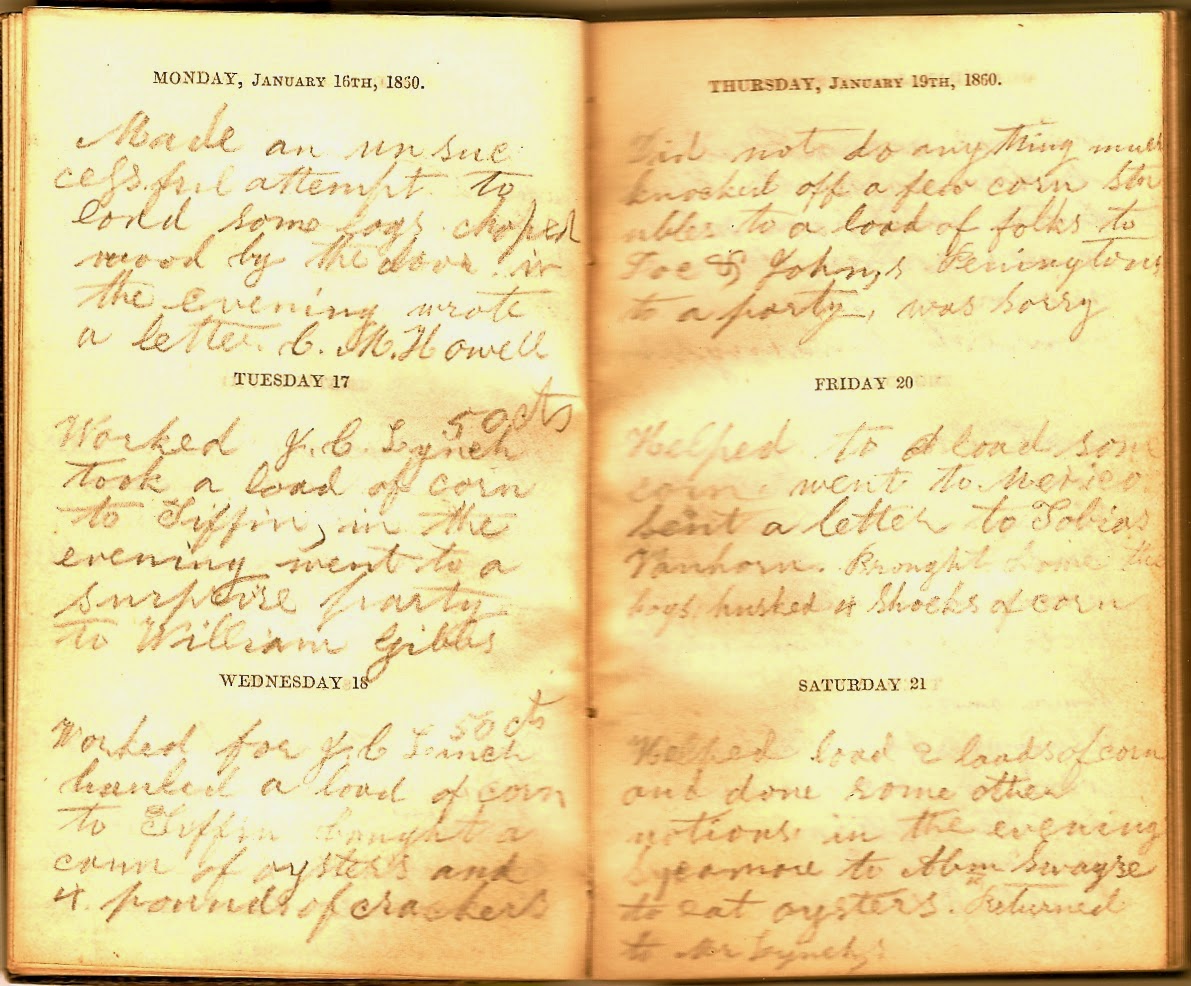 MONDAY, JANUARY 16TH, 1860.
Made an unsuc
cessful attempt to
load some logs choped
wood by the door in
the evening wrote
a letter C. M. Howell
TUESDAY 17
50 cts
Worked J. C. Lynch
took a load of corn
to Tiffin, in the
evening went to a
surprise party
to William Gibbs
WEDNESDAY 18
50 cts
Worked for J. C Linch
hauled a load of corn
to Tiffin bought a
cann of oysters and
4 pounds of crackers
THURSDAY, JANUARY 19TH, 1860.
Did not do anything much
knocked off a few corn stu
ubles to a load of folks to
Joe & John,s Peningtons
to a party, was sorry
FRIDAY 20
Helped to load som
corn went to Mexico
sent a letter to Tobias
Vanhorn. Brought home the
boys husked 4 shocks of corn
SATURDAY 21
Helped load 2 loads of corn
and done some other
notions in the evening
Sycamore to Abm Swayze
to eat oysters. Returned
to Mr Lynch,s